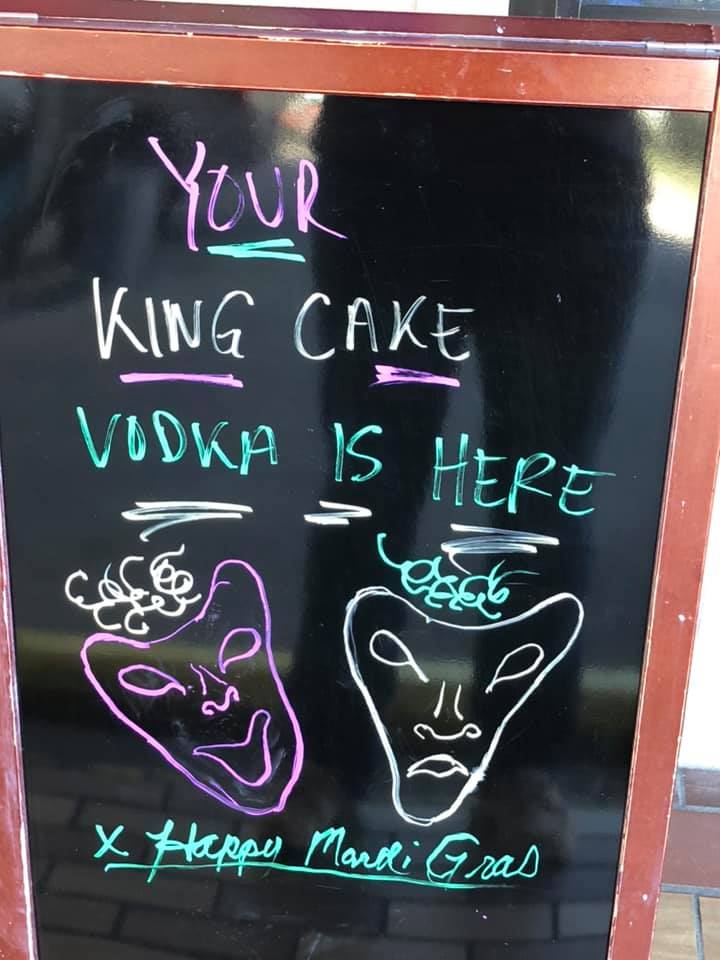 YOUR
KING CAKE
VODKA IS HERE
x Happy Mardi Gras